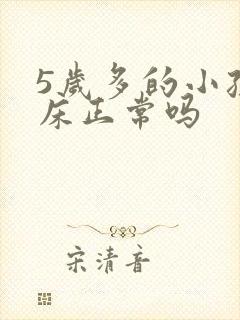 5歲多的小孩
床正常吗
宋清音